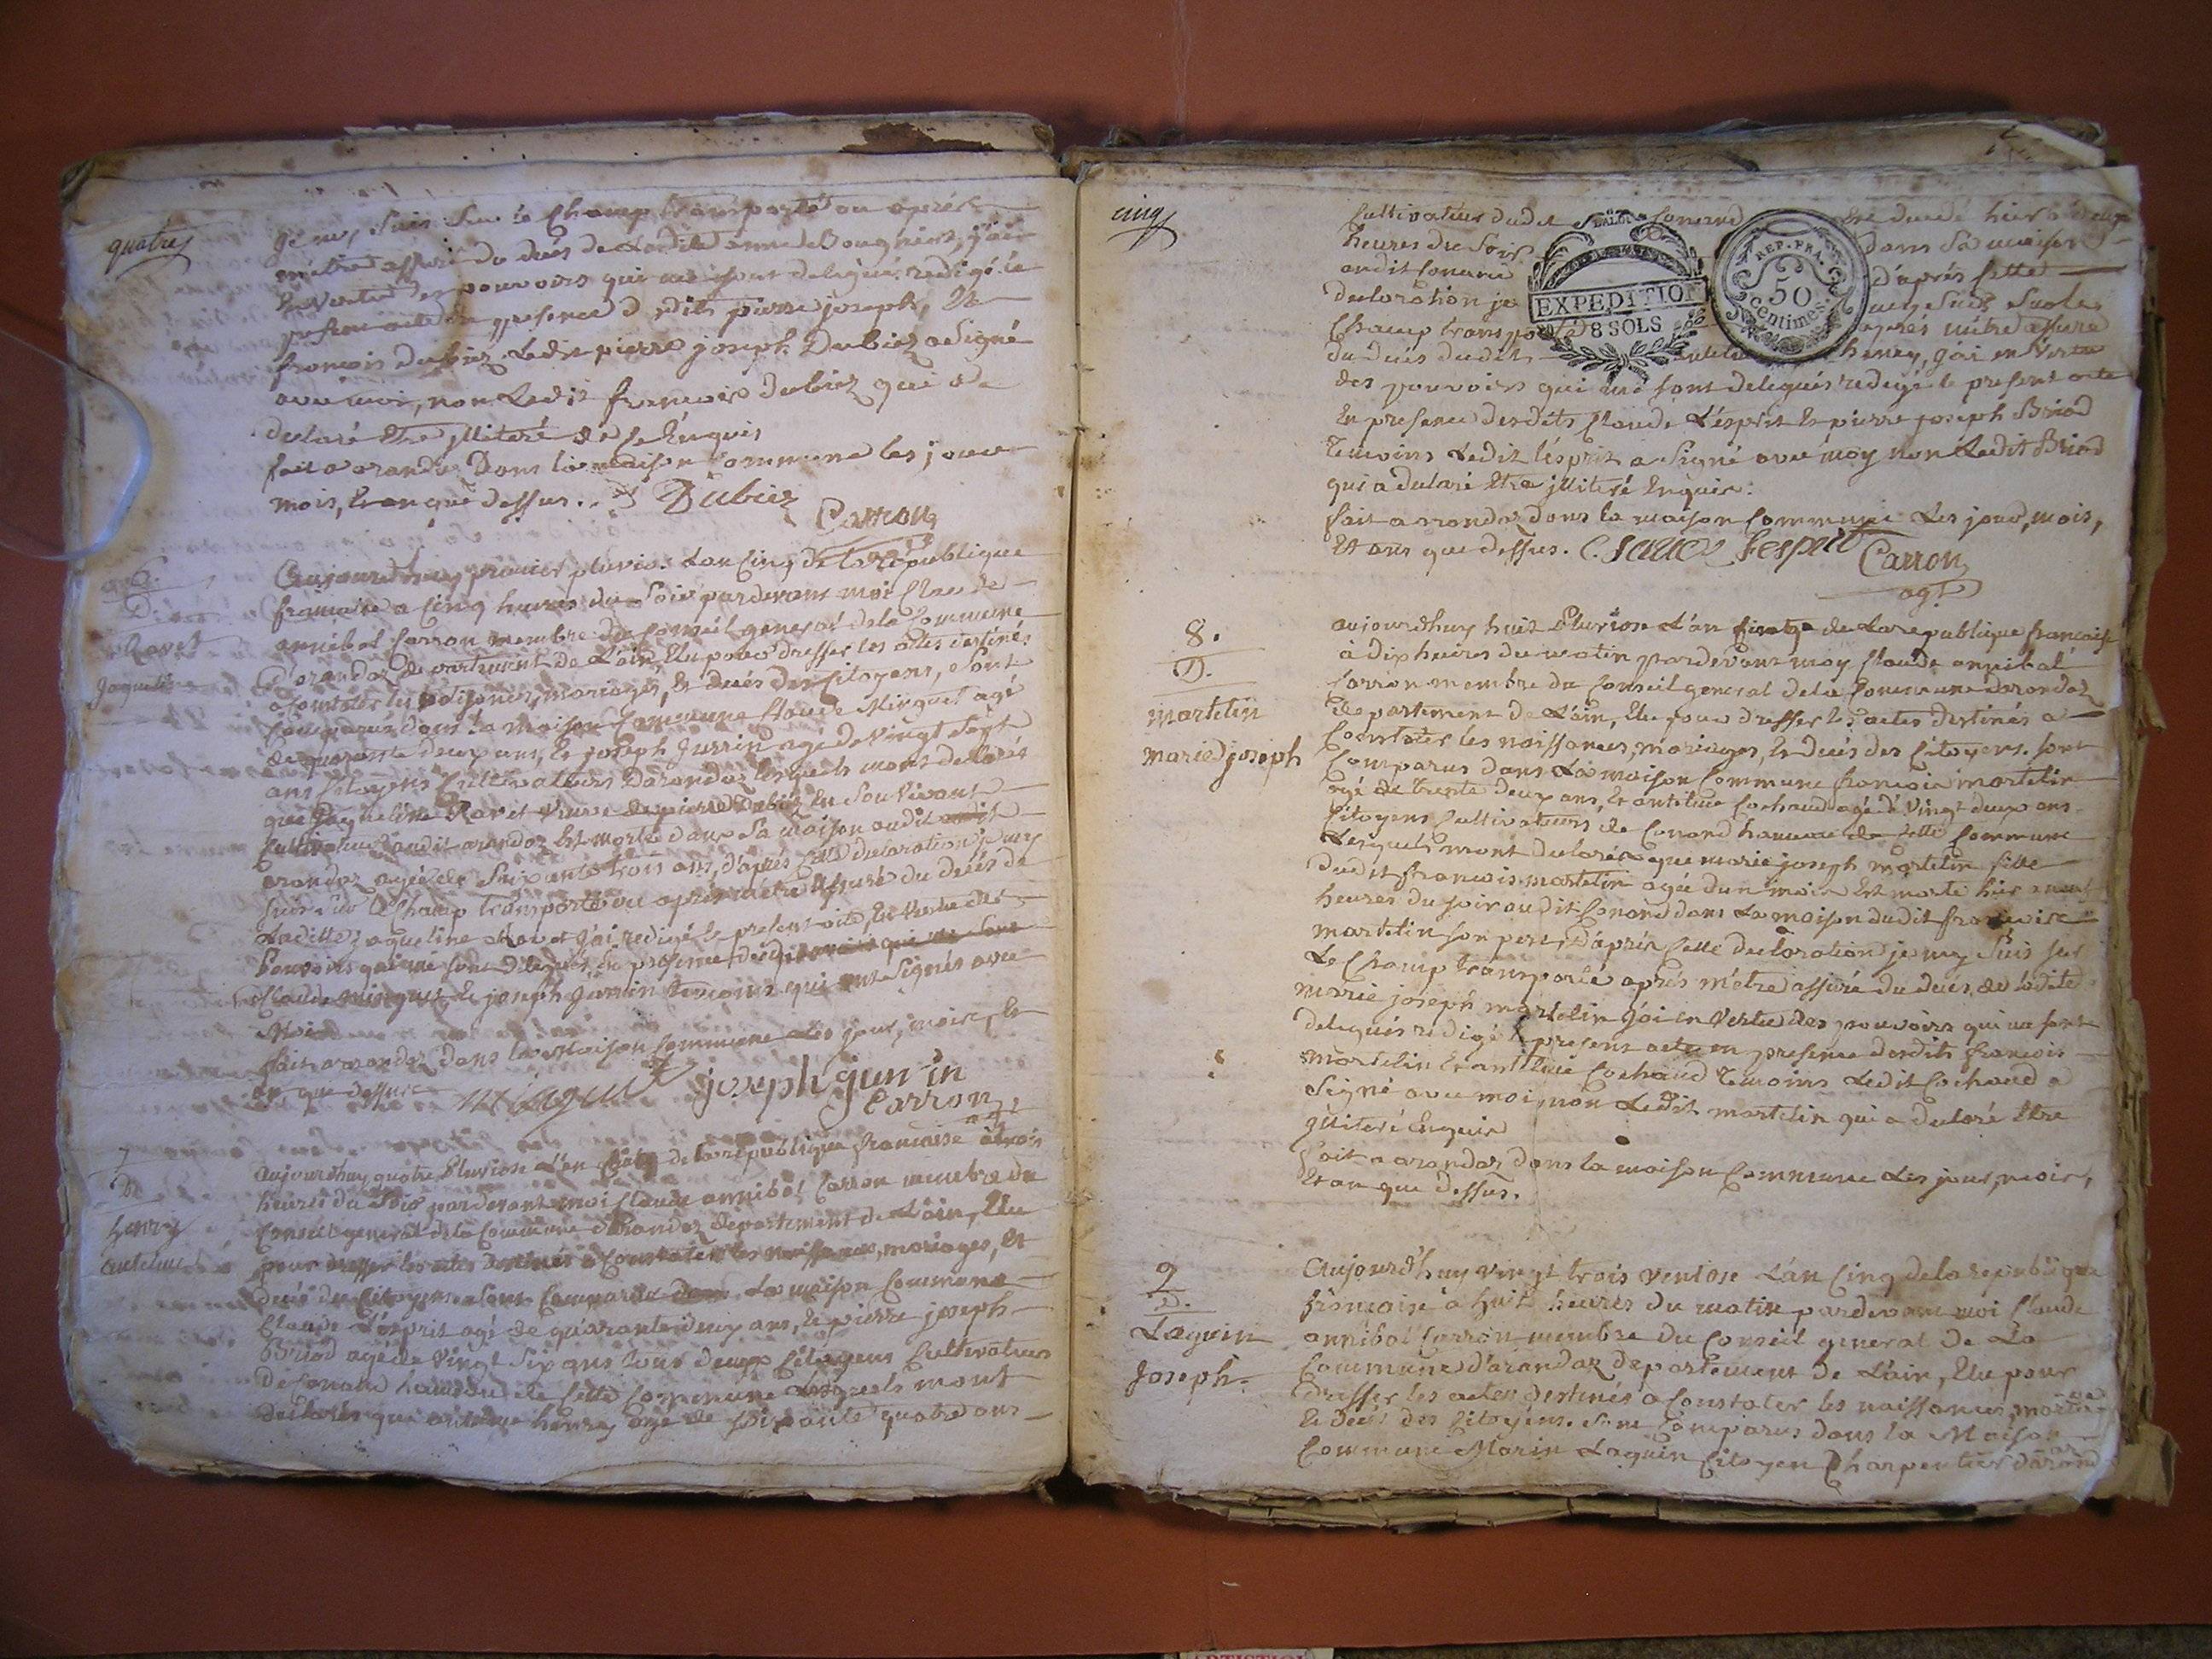 quatre
je my Suis Sur le Champ transporté ou après
mêtre assuré du deces de Ladite anne Bougniet, j'ai
En Vertu des pouvoirs qui me sont délégués redigé le
présent acte En presence d sdits pierre joseph, Et
françois dubiez. Ledit pierre joseph Dubiez a Signé
avec moi, non Ledit françois dubiez qui a
declaré Etre jlliteré de ce Enquis
fait a arandaz Dans la maison Commune les jour
mois, Et an que dessus .. Dubiez
Carron
6.
D.
Ravet
Jaqueline
Aujourdhuy premier pluvio. L'an Cinq de la république
française a Cinq heures du Soir pardevant moi Claude
annibal Carron membre du Conseil general de la Commune
d'arandaz departement de L'ain, Elu pour dresser les actes destinés
a Constater les naissances, mariages, Et deces des Citoyens, Sont
Comparus dans la maison Commune Claude Minguet agé
de quarante deux ans, Et joseph Juvrin agé de Vingt Sept
ans Citoyens Cultivateurs D'arandaz lesquels mont declarés
que Jaqueline Ravet Veuve de pierre Dubiez En Son Vivant
Cultivateur audit arandaz Est morte dans Sa maison audit
arandaz agée de Soixante trois ans, d'après Cette declaration je my
Suis Sur le Champ transporté ou après m'etre assuré du deces de
Ladite jaqueline Ravet j'ai redigé le present acte, En Vertu des
Pouvoirs qui me sont délégués En presence desdits
Claude Minguet Et joseph Juvrin temoins qui ont Signés avec
Moi
fait a arandaz dans la Maison Commune Les jour, mois, Et
an que dessus Minguet joseph juvrin
Carron
agt
7
D.
henry
antelme
Aujourdhuy quatre Pluviose L'an Cinq de la république francaise a trois
heures du Soir pardevant moi Claude annibal Carron membre du
Conseil general de la Commune d'Arandaz departement de L'ain, Elu
pour dresser les actes destinés a Constater les naissances, mariages, Et
deces des Citoyens. Sont Comparus dans La maison Commune
Claude L'esprit agé de quarante deux ans, Et pierre joseph
Briod agé de Vingt Six ans tous deux Citoyens Cultivateurs
de Conand hameau de Cette Commune Lesquels mont
declarés que antelme henry agé de soixante quatre ans
cinq
Cultivateur dudit Conand Est decedé hier a deux
heures du Soir dans Sa maison
audit Conand d'après Cette
declaration je my Suis Sur le
Champ transporté après mêtre assuré
du deces dudit antelme henry, j'ai en Vertu
des pouvoirs qui me sont delegués redigé le present acte
En presence desdits Claude L'esprit Et pierre joseph Briod
temoins Ledit l'esprit a Signé avec moy non Ledit Briod
qui a declaré Etre jlliteré Enquis.
fait a arandaz dans la maison Commune Les jour, mois,
Et ans que dessus. Lespril Carron
agt
DALOI
EXPEDITION
8 SOLS
REP. FRA.
50
Centimes
8.
D.
Martelin
Marie joseph
aujourdhuy huit Pluviose L'an Cinq de La republique francaise
à dix heures du matin pardevant moy Claude annibal
Carron membre du Conseil general de la Commune darandaz
departement de L'ain, Elu pour dresser les actes destinés a
Constater les naissances, mariages, Et deces des Citoyens. Sont
Comparus dans La maison Commune francois martelin
agé de trente deux ans, Et antelme Cochaud agé de Vingt deux ans
Citoyens Cultivateurs de Conand hameau de Cette Commune
Lesquels mont declarés que marie joseph martelin fille
dudit francois martelin agée dun mois Est morte hier a neuf
heures du soir audit Conand dans La maison dudit francois
martelin son pere, d'après Cette declaration je my Suis sur
Le Champ transporté après m'être assuré du deces de ladite
marie joseph martelin j'ai en Vertu des pouvoirs qui me sont
delegués redigé le present acte en presence desdits francois
martelin Et antelme Cochaud temoins Ledit Cochaud a
Signé avec moi, non Ledit martelin qui a declaré Etre
jlliteré Enquis
fait a arandaz dans la maison Commune Les jour, mois,
Et an que dessus.
9
D.
Laguin
Joseph.
Aujourd'huy vingt trois ventose L'an Cinq de la republique
française a huit heures du matin pardevant moi Claude
annibal Carron membre du Conseil general de La
Commune d'arandaz departement de L'ain, Elu pour
dresser les actes destinés a Constater les naissances, mariages
Et deces des Citoyens. Sont Comparus dans la Maison
Commune Marin Laguin Citoyen Charpentier darand